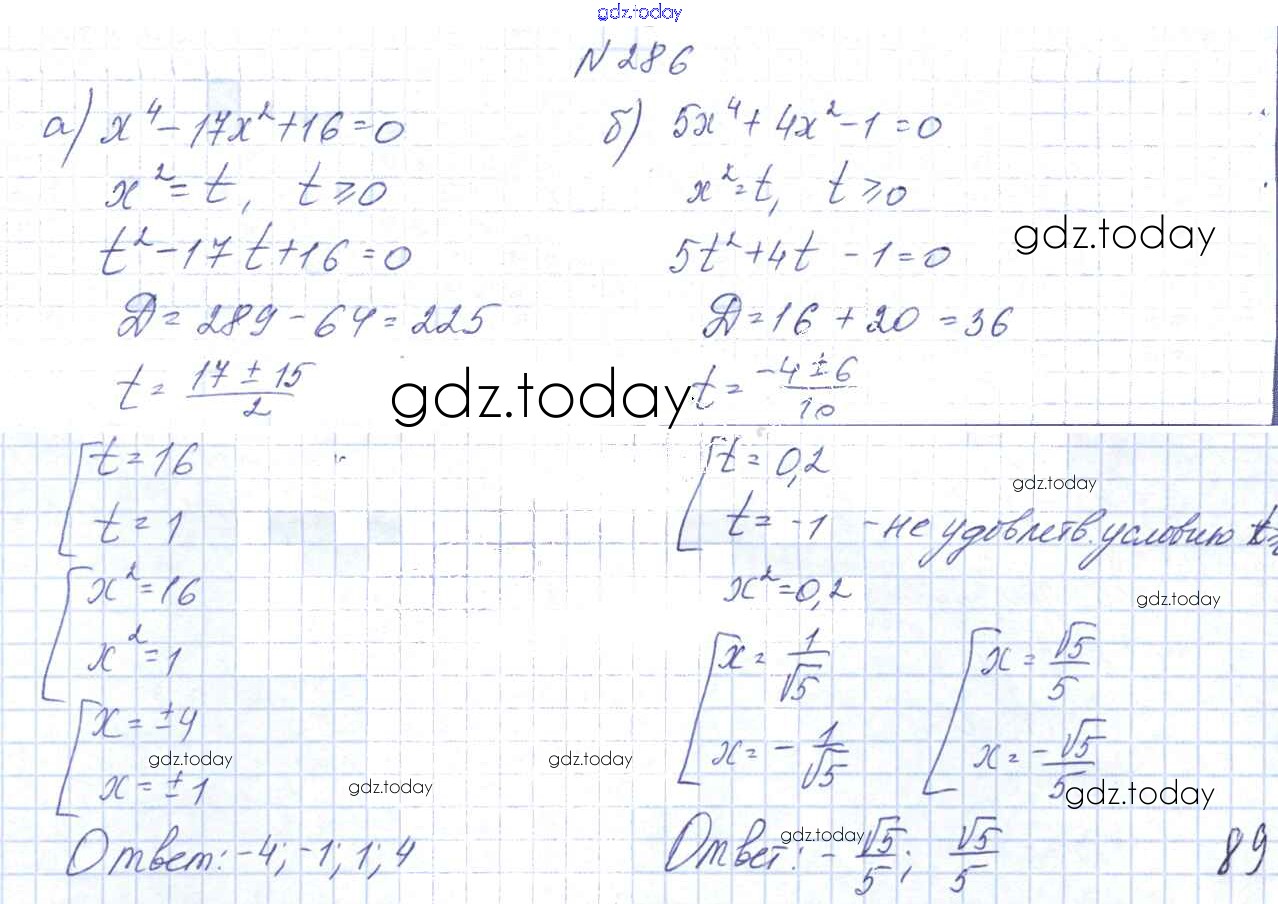 gdz.today
N 286
а) x⁴ - 17x² + 16 = 0
x² = t, t ⩾ 0
t² - 17t + 16 = 0
Д = 289 - 64 = 225
t = (17 ± 15)/2
t = 16
t = 1
x² = 16
x² = 1
x = ±4
x = ±1
Ответ: -4; -1; 1; 4
б) 5x⁴ + 4x² - 1 = 0
x² = t, t ⩾ 0
5t² + 4t - 1 = 0
Д = 16 + 20 = 36
t = (-4 ± 6)/10
t = 0,2
t = -1 - не удовлетв. условию
x² = 0,2
x = 1/√5
x = -1/√5
x = √5/5
x = -√5/5
Ответ: -√5/5; √5/5
89
gdz.today
gdz.today
gdz.today
gdz.today
gdz.today
gdz.today
gdz.today
gdz.today
gdz.today